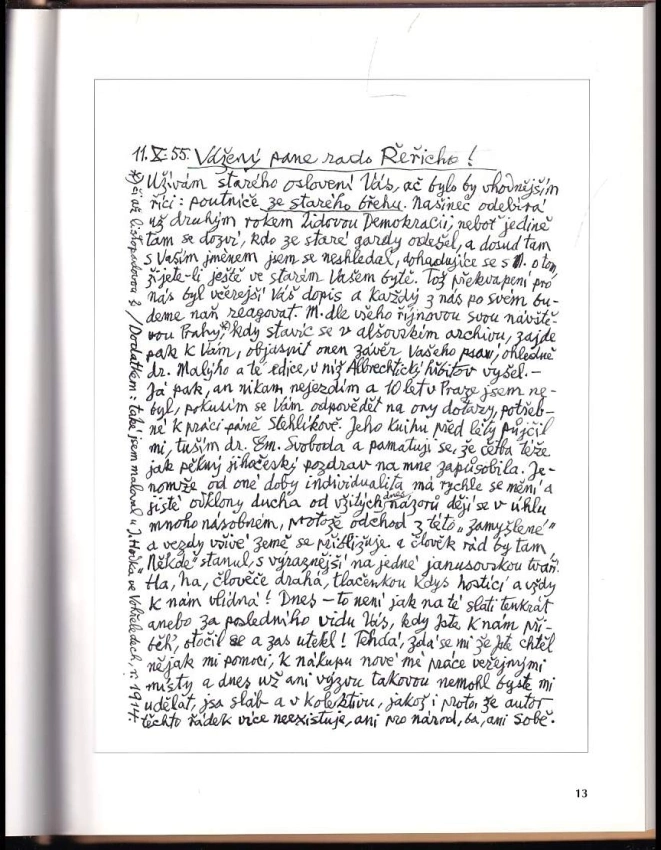 11.X.55. Vážený pane rado Řeřicho!
Užívám starého oslovení Vás, ač bylo by vhodnějším
říci: poutníče ze starého břehu. Našinec odebírá
už druhým rokem Lidovou Demokracii, neboť jedině
tam se dozví, kdo ze staré gardy odešel, a dosud tam
s Vaším jménem jsem se neshledal, dohadujíce se s M. o tom,
žijete-li ještě ve starém Vašem bytě. Tož překvapení pro
nás byl včerejší Váš dopis a každý z nás po svém bu-
deme naň reagovat. M. dle všeho říjnovou svou návště-
vou Prahy,*) kdy stavíc se v alšovském archivu, zajde
pak k Vám, objasnit onen závěr Vašeho psaní, ohledně
dr. Malýho a té edice, v níž Albrechtický hřbitov vyšel.—
Já pak, an nikam nejezdím a 10 let v Praze jsem ne-
byl, pokusím se Vám odpovědět na ony dotazy, potřeb-
né k práci páně Stehlíkově. Jeho knihu před léty půjčil
mi, tuším dr. Em. Svoboda a pamatuji se, že četba téže
jak pěkný jihočeský pozdrav na mne zapůsobila. Je-
nomže od oné doby individualita má rychle se mění a
jisté odklony ducha od vžitých dnes názorů dějí se v úhlu
mnohonásobném, protože odchod z této „zamyšlené"
a vezdy vší země se přibližuje a člověk rád by tam
„Někde" stanul, s výraznější na jedné janusovskou tváří.
Ha, ha, člověče drahá, tlačenkou kdys hostící a vždy
k nám vlídná! Dnes – to není jak na té slati tenkrát
anebo za posledního vidu Vás, kdy jste k nám při-
běh', otočil se a zas utekl! Tehdá, zdá se mi že jste chtěl
nějak mi pomoci, k nákupu nové mé práce veřejnými
místy a dnes už ani výzvu takovou nemohl byste mi
udělat, jsa sláb a v kolektivu, jakož i proto, že autor
těchto řádek více neexistuje, ani pro národ, ba, ani sobě.
*) či až listopadovou? / Dodatkem: také jsem maloval u J. Horkú ve Vohřeledech, r. 1914.
13